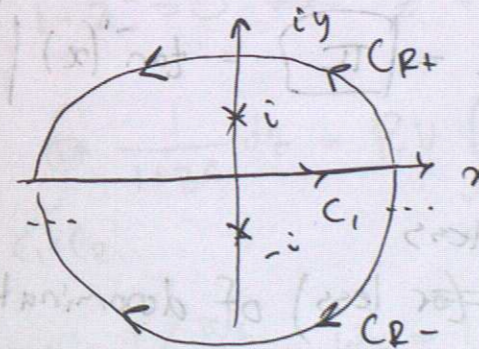 iy
C_R+
i
x
C_1
-i
C_R-